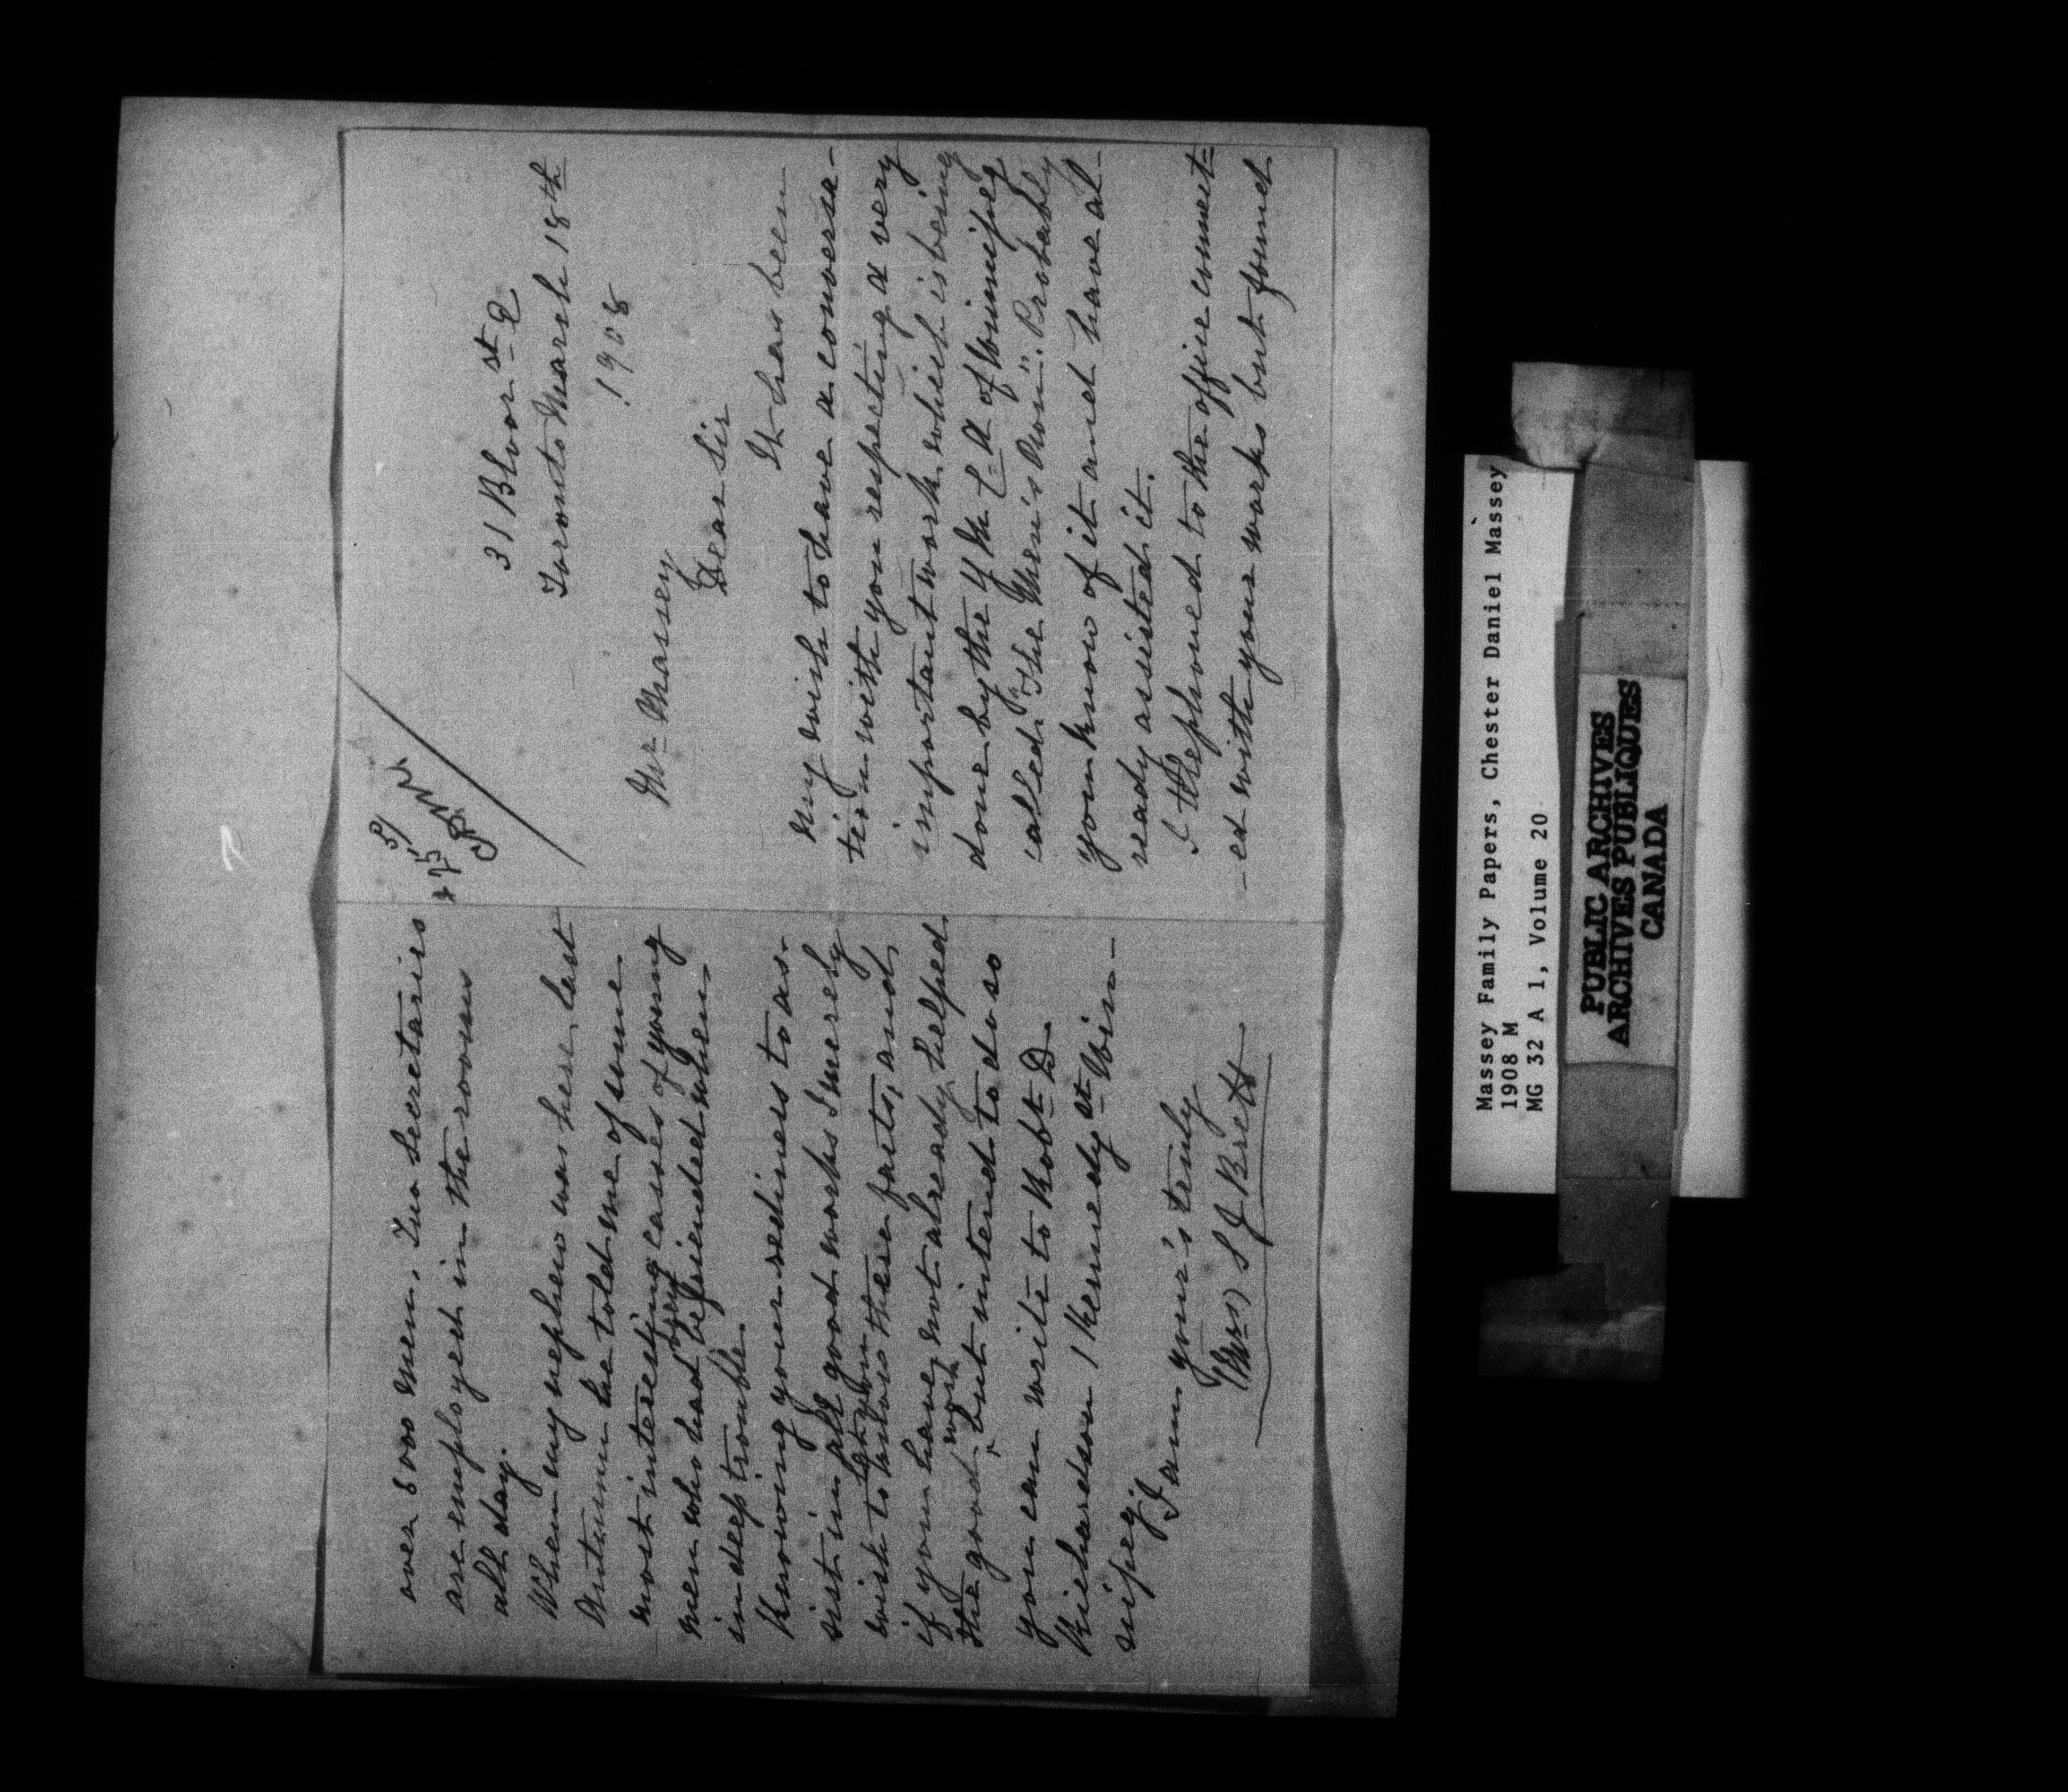 31 Bloor st E
Toronto March 18th
1908
Mr Massey
Dear Sir
It has been
my wish to have a conversa-
tion with you respecting a very
important work which is being
done by the Y M C A of Winnipeg
called "The Men's Own". Probably
you know of it and have al-
ready assisted it.
I telephoned to the office connect=
-ed with your works but found
over 5000 men. Two Secretaries
are employed in the rooms
all day.
When my nephew was here last
Autumn he told me of some
most interesting cases of young
men who had been befriended when
in deep trouble.
Knowing your rediness to as-
sist in all good works I merely
wish to lay before you these facts, and
if you have not already helped
the good work, but intend to do so
you can write to Robt D
Richardson 1 Kennedy st Win-
nipeg.
I am your's truly
(Mrs) S J Brett
Massey Family Papers, Chester Daniel Massey
1908 M
MG 32 A 1, Volume 20
PUBLIC ARCHIVES
ARCHIVES PUBLIQUES
CANADA